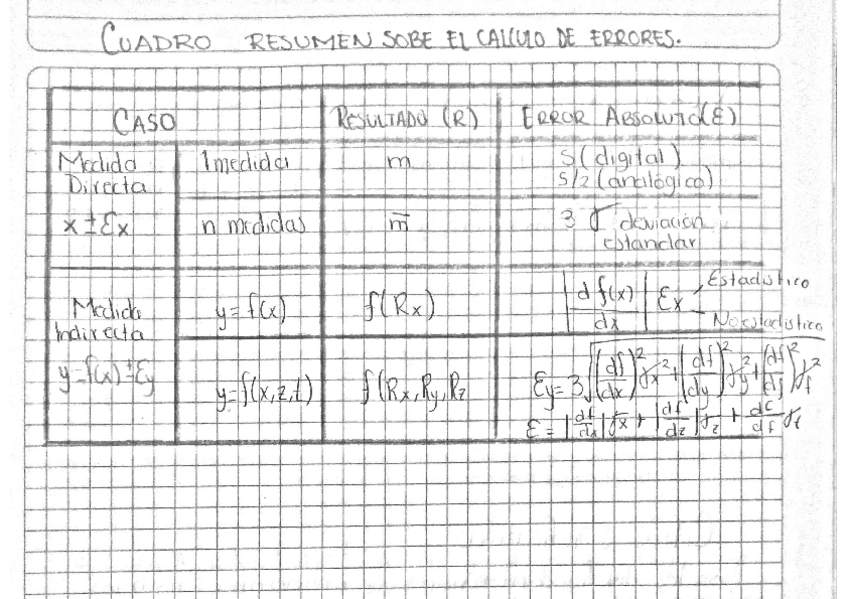 CUADRO RESUMEN SOBE EL CALCULO DE ERRORES.
CASO
RESULTADO (R)
ERROR ABSOLUTO(ε)
Medida
Directa
x ± εx
1 medida
m
S (digital)
S/2 (analógico)
n medidas
m̄
3 σ deviación
estandar
Medida
Indirecta
y=f(x)±εy
y=f(x)
f(Rx)
|d f(x)/dx| εx
Estadistico
No estadistico
y=f(x,z,t)
f(Rx,Ry,Rz
εy=3√(df/dx)²σx²+(df/dy)²σy²+(df/df)²σf²
ε=|df/dx|σx+|df/dz|σz+